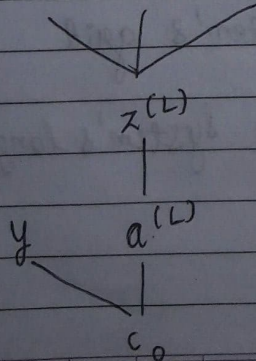 z^(L)
y a^(L)
c₀